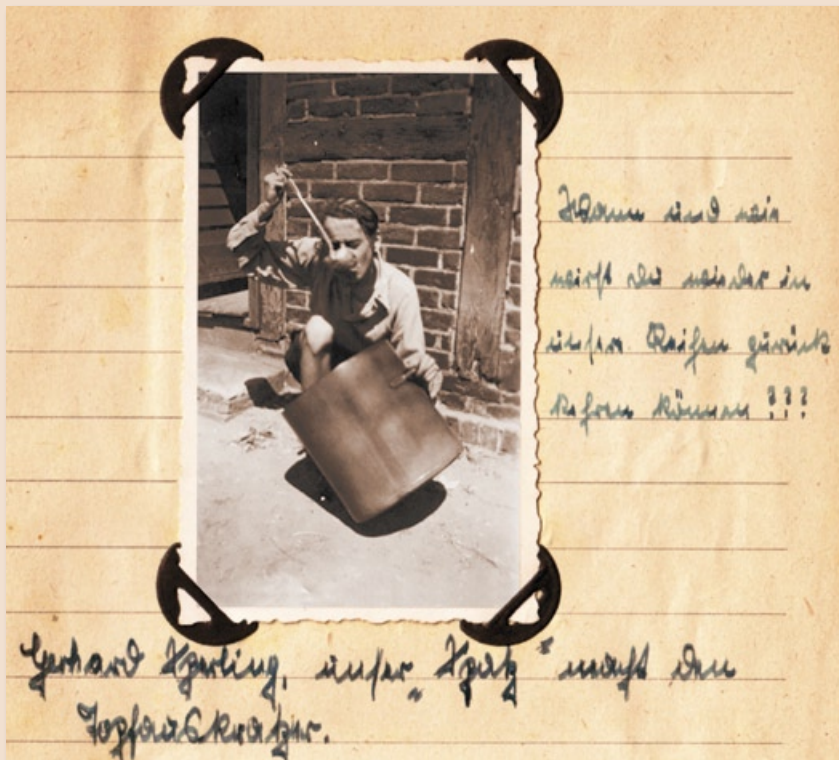 Wann und wie
wirst du wieder in
unsere Reihen zurück
kehren können ???
Gerhard Sperling, unser „Spatz“ macht den
Topfauskratzer.